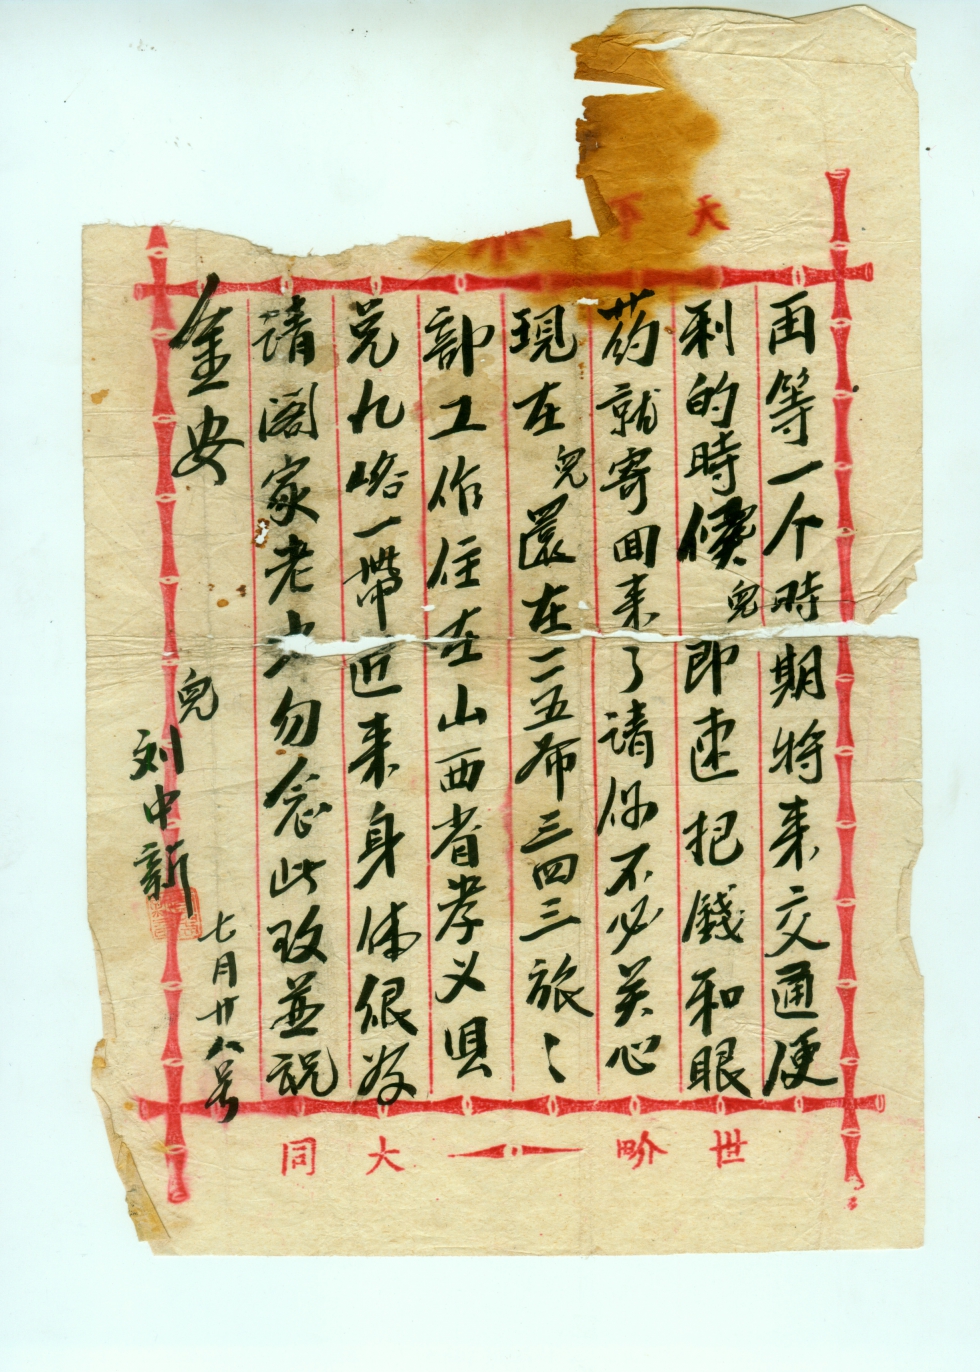 天下
再等一个時期將来交通便
利的時候兒即速把錢和眼
药就寄囬来了請你不必关心
現在兒還在二五布三四三旅〻
部工作住在山西省孝义县
兑九峪一带近来身体很好
請阁家老少勿念此致並祝
金安
兒
刘中新
七月廿八号
世界 大同